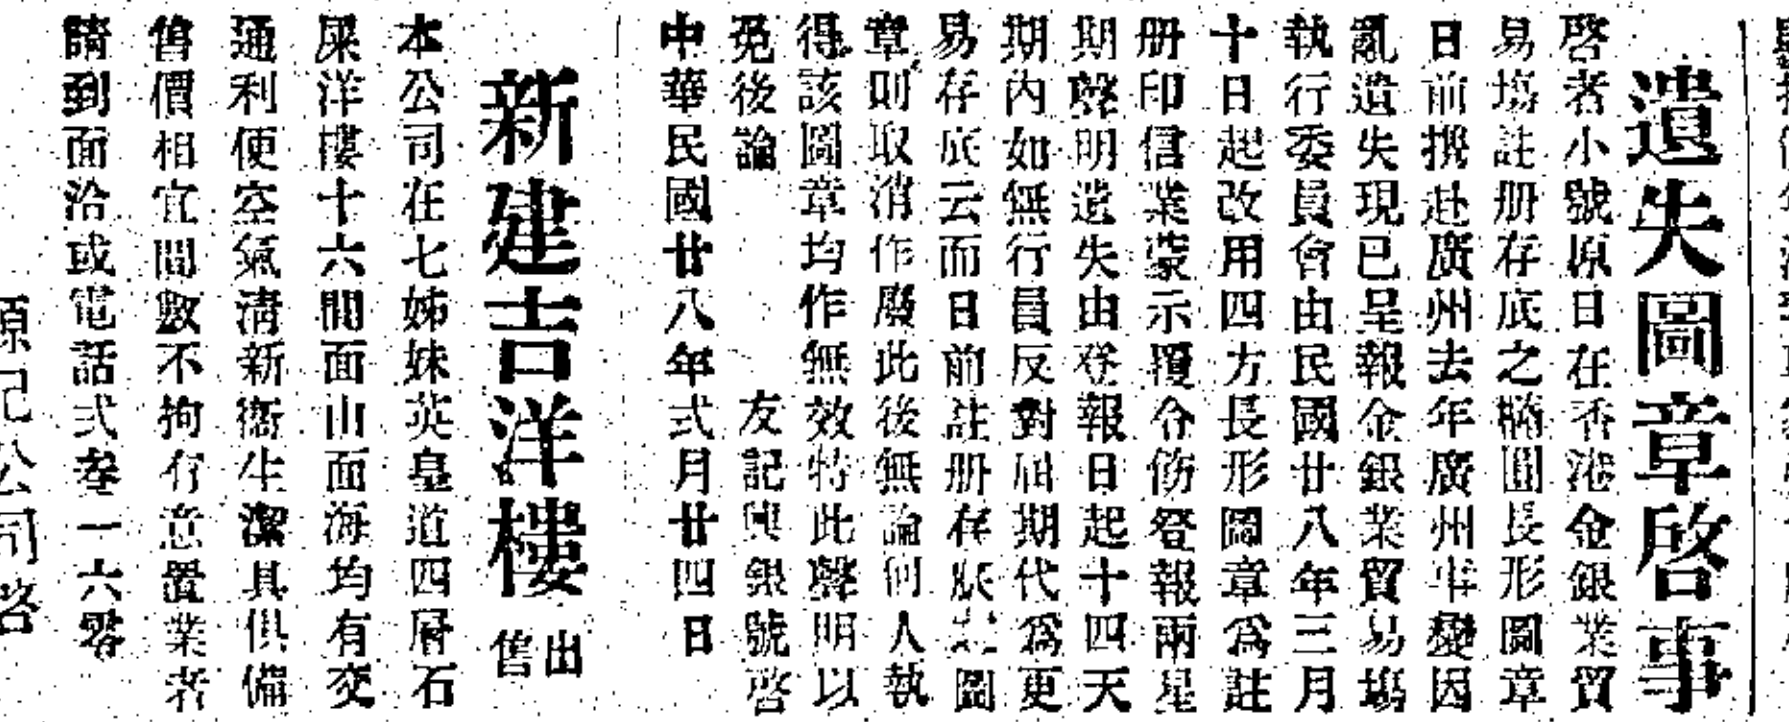 遺失圖章啓事
啓者小號原日在香港金銀業貿
易塲註册存底之橢圓長形圖章
日前携赴廣州去年廣州事變因
亂遺失現已呈報金銀業貿易塲
執行委員會由民國廿八年三月
十日起改用四方長形圖章爲註
册印信業蒙示覆令飭登報兩星
期聲明遺失由登報日起十四天
期內如無行員反對屆期代爲更
易存底云而日前註册存底之圖
章則取消作廢此後無論何人執
得該圖章均作無效特此聲明以
免後論
友記興銀號啓
中華民國廿八年弍月廿四日
新建吉洋樓出售
本公司在七姊妹英皇道四層石
屎洋樓十六間面山面海均有交
通利便空氣清新衞生潔具俱備
售價相宜間數不拘有意置業者
請到面洽或電話弍叁一六零
源記公司啓